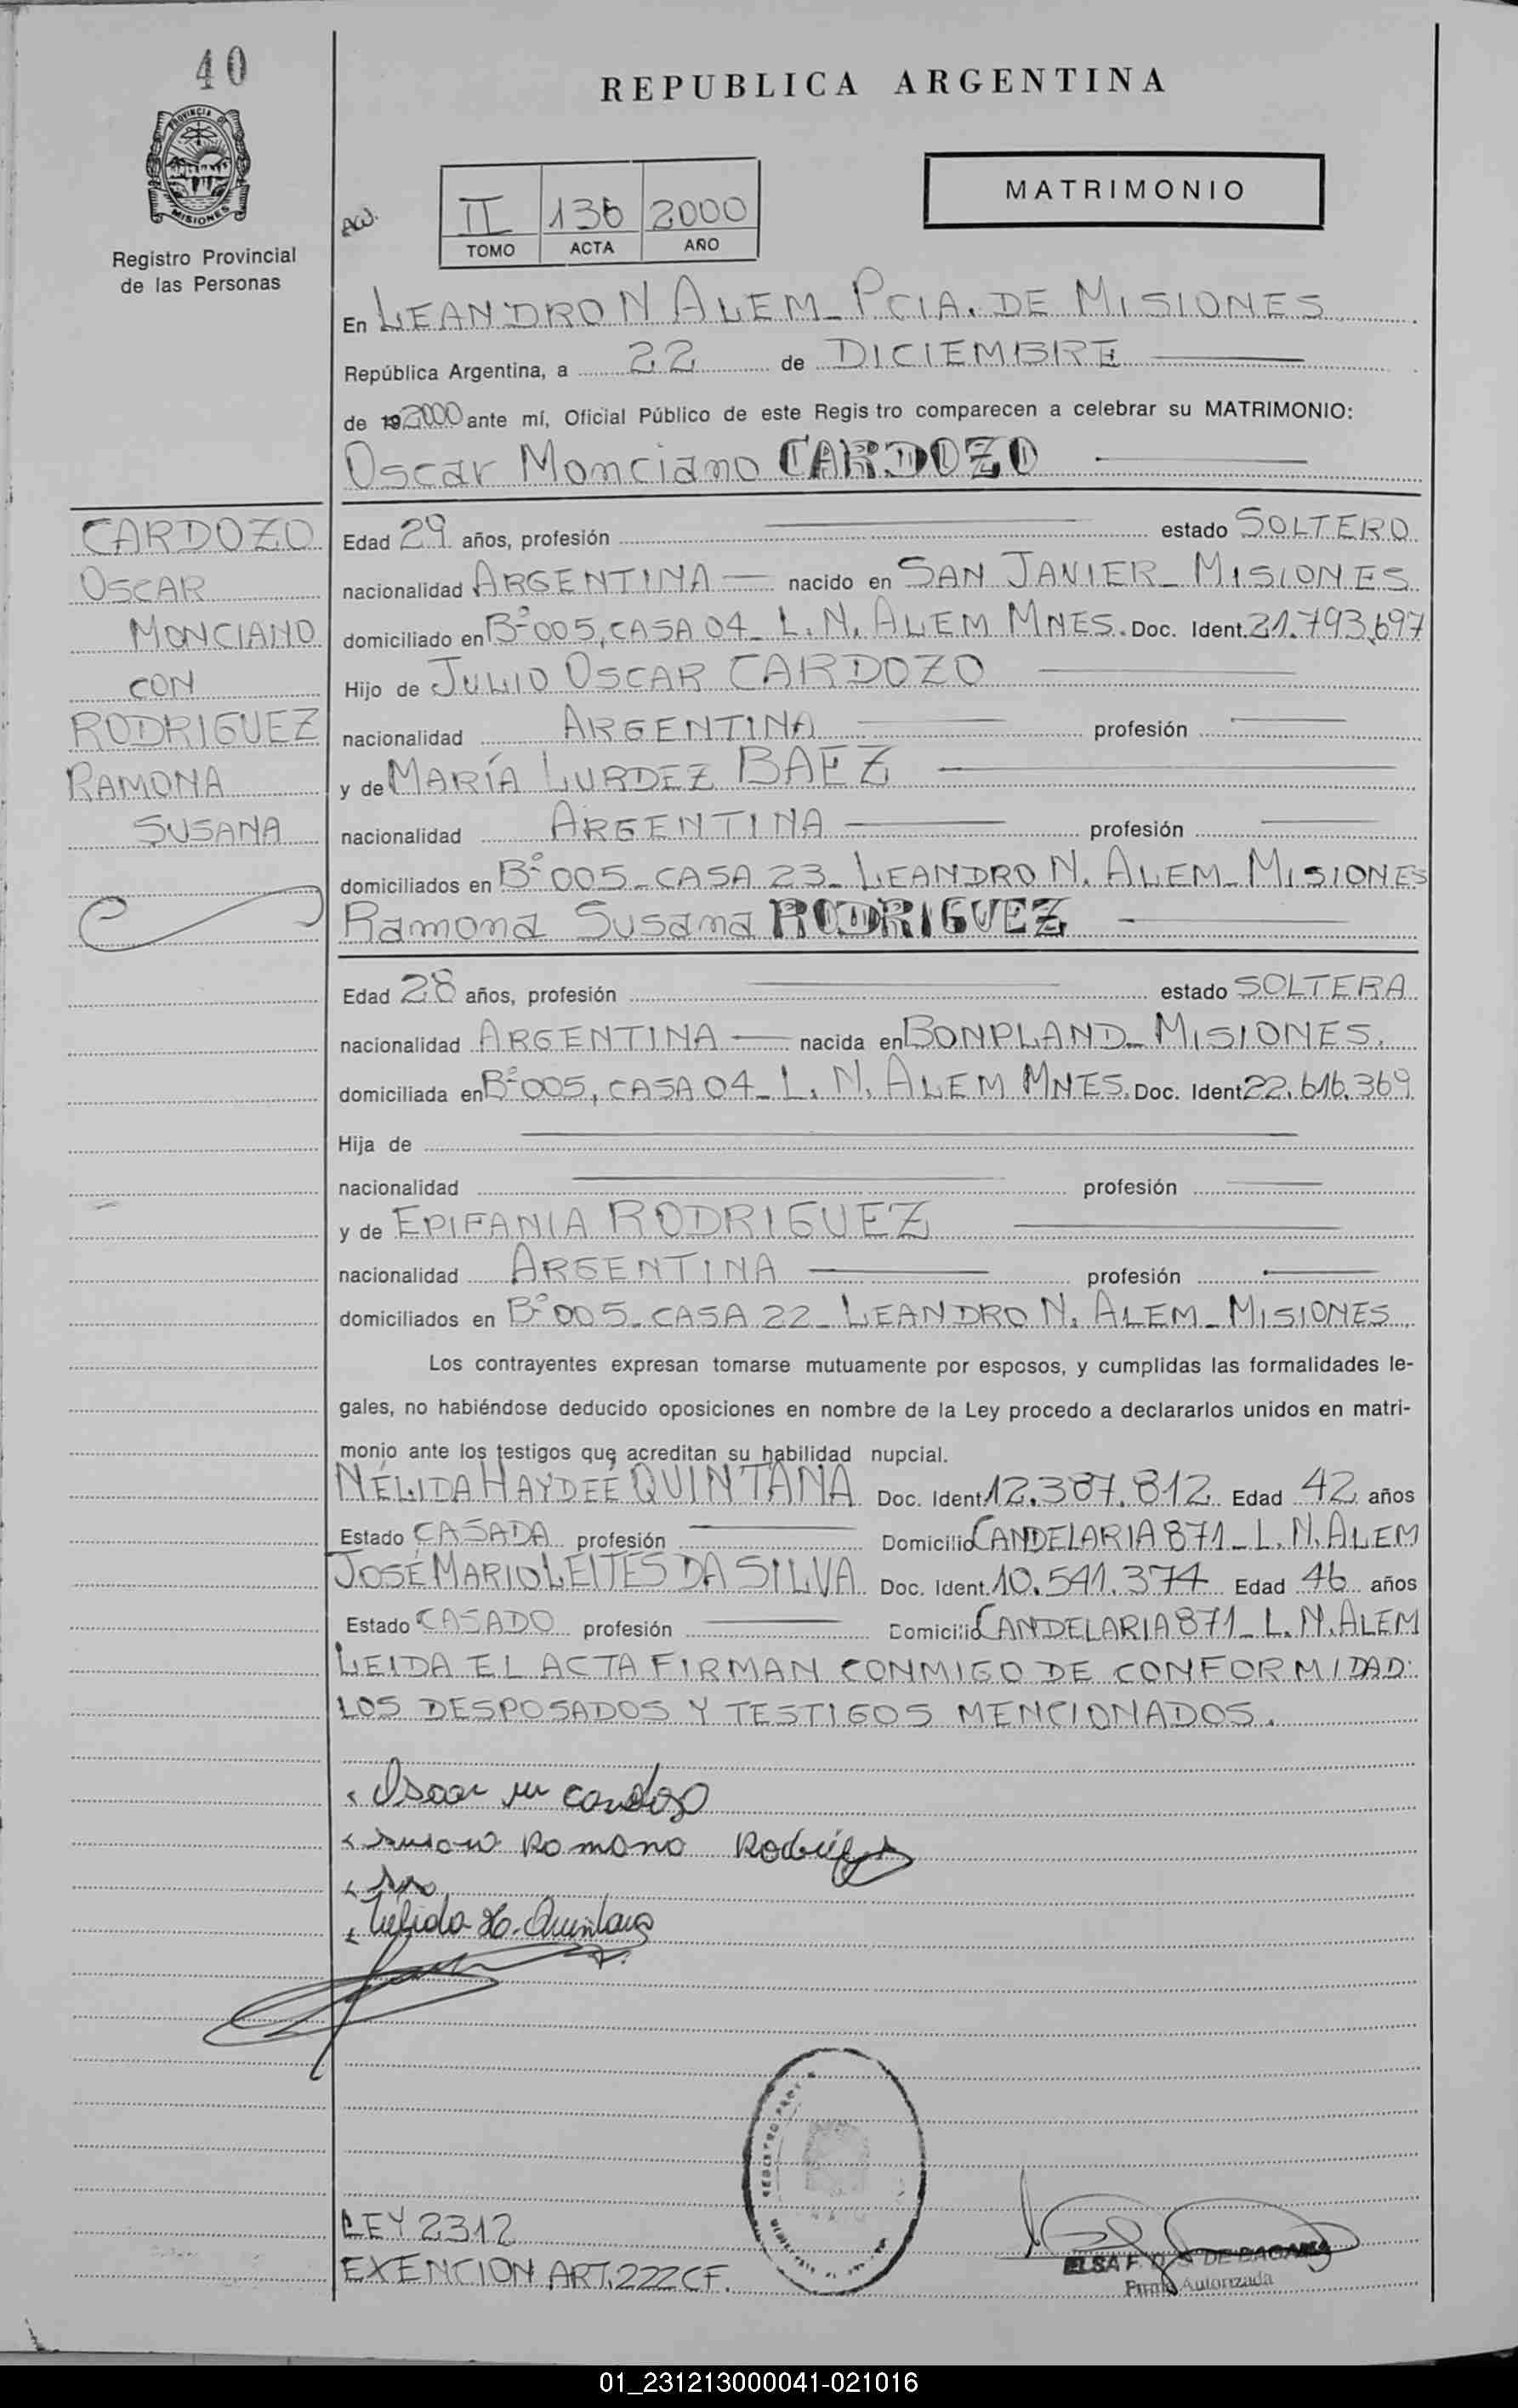 40
REPUBLICA ARGENTINA
PROVINCIA DE
MISIONES
MATRIMONIO
II 136 2000
TOMO ACTA AÑO
Registro Provincial
de las Personas
En LEANDRO N ALEM_ PCIA. DE MISIONES
República Argentina, a 22 de DICIEMBRE
de 192000 ante mí, Oficial Público de este Regis tro comparecen a celebrar su MATRIMONIO:
Oscar Monciano CARDOZO
CARDOZO
OSCAR
MONCIANO
CON
RODRIGUEZ
RAMONA
SUSANA
Edad 29 años, profesión estado SOLTERO
nacionalidad ARGENTINA nacido en SAN JAVIER_ MISIONES
domiciliado en Bº005, CASA 04_ L. N. ALEM MNES. Doc. Ident. 21.793.697
Hijo de JULIO OSCAR CARDOZO
nacionalidad ARGENTINA profesión
y de MARÍA LURDEZ BAEZ
nacionalidad ARGENTINA profesión
domiciliados en Bº005_CASA 23_ LEANDRO N. ALEM_ MISIONES
Ramona Susana RODRIGUEZ
Edad 28 años, profesión estado SOLTERA
nacionalidad ARGENTINA nacida en BONPLAND_ MISIONES.
domiciliada en Bº005, CASA 04_ L. N. ALEM MNES. Doc. Ident 22.616.369
Hija de
nacionalidad profesión
y de EPIFANIA RODRIGUEZ
nacionalidad ARGENTINA profesión
domiciliados en Bº005_CASA 22_ LEANDRO N. ALEM_ MISIONES.
Los contrayentes expresan tomarse mutuamente por esposos, y cumplidas las formalidades le-
gales, no habiéndose deducido oposiciones en nombre de la Ley procedo a declararlos unidos en matri-
monio ante los testigos que acreditan su habilidad nupcial.
NÉLIDA HAYDEÉ QUINTANA Doc. Ident 12.387.812 Edad 42 años
Estado CASADA profesión Domicilio CANDELARIA 871_ L. N. ALEM
JOSÉ MARIO LEITES DA SILVA Doc. Ident. 10.541.374 Edad 46 años
Estado CASADO profesión Domicilio CANDELARIA 871_ L. N. ALEM
LEIDA EL ACTA FIRMAN CONMIGO DE CONFORMIDAD:
LOS DESPOSADOS Y TESTIGOS MENCIONADOS.
Oscar M Cardozo
Romana Rodriguez
Nélida H. Quintana
LEY 2312
EXENCION ART. 222 CF.
ELSA F. DE
Firma Autorizada
01_231213000041-021016